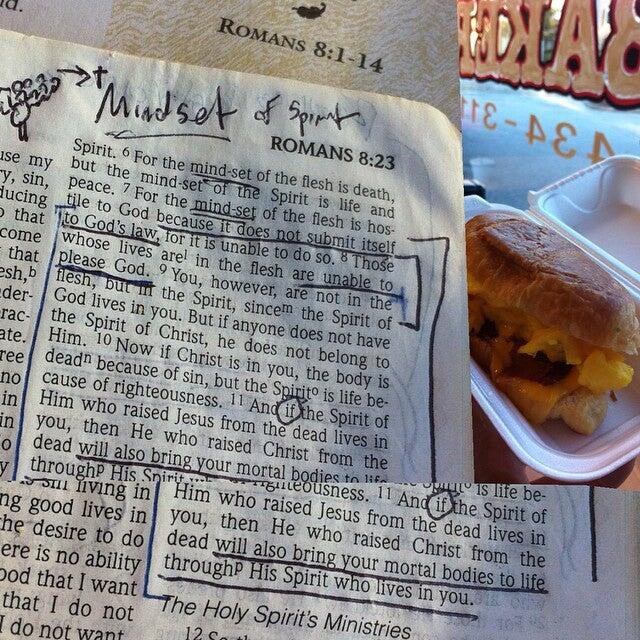 ROMANS 8:1-14
Mindset of Spirit
ROMANS 8:23
Spirit. 6 For the mind-set of the flesh is death,
but the mind-set of the Spirit is life and
peace. 7 For the mind-set of the flesh is hos-
tile to God because it does not submit itself
to God's law, for it is unable to do so. 8 Those
whose lives are] in the flesh are unable to
please God. 9 You, however, are not in the
flesh, but in the Spirit, sinceᵐ the Spirit of
God lives in you. But if anyone does not have
the Spirit of Christ, he does not belong to
Him. 10 Now if Christ is in you, the body is
deadⁿ because of sin, but the Spiritᵒ is life be-
cause of righteousness. 11 And if the Spirit of
Him who raised Jesus from the dead lives in
you, then He who raised Christ from the
dead will also bring your mortal bodies to life
throughᵖ His Spirit who
use my
ry, sin,
ducing
o that
come
that
esh,ᵇ
nder-
rac-
ate.
ree
no
in
in
o
y
living in
ng good lives in
the desire to do
ere is no ability
ood that I want
that I do not
I do not want
Spiritᵒ is life be-
righteousness. 11 And if the Spirit of
Him who raised Jesus from the dead lives in
you, then He who raised Christ from the
dead will also bring your mortal bodies to life
throughᵖ His Spirit who lives in you.
The Holy Spirit's Ministries
12 So th
BAKE
434-31